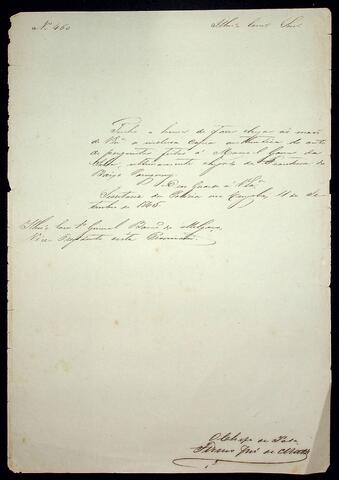 Nº 460
Illmo e Exmo Snr
Tenho a honra de fazer chegar ás mãos
de V. Exa a inclusa copia authentica do auto
de perguntas feitas á Manoel Gomes da
Silva, ultimamente chegado da Fronteira do
Baixo Paraguay.
Deos Guarde a V. Exa
Secretaria da Policia em Cuyabá, 11 de Se-
tembro de 1865
Illmo e Exmo Snr General Barão de Melgaço,
Vice Presidente desta Provincia.
O Chefe de Policia
Firmo José de Mattos